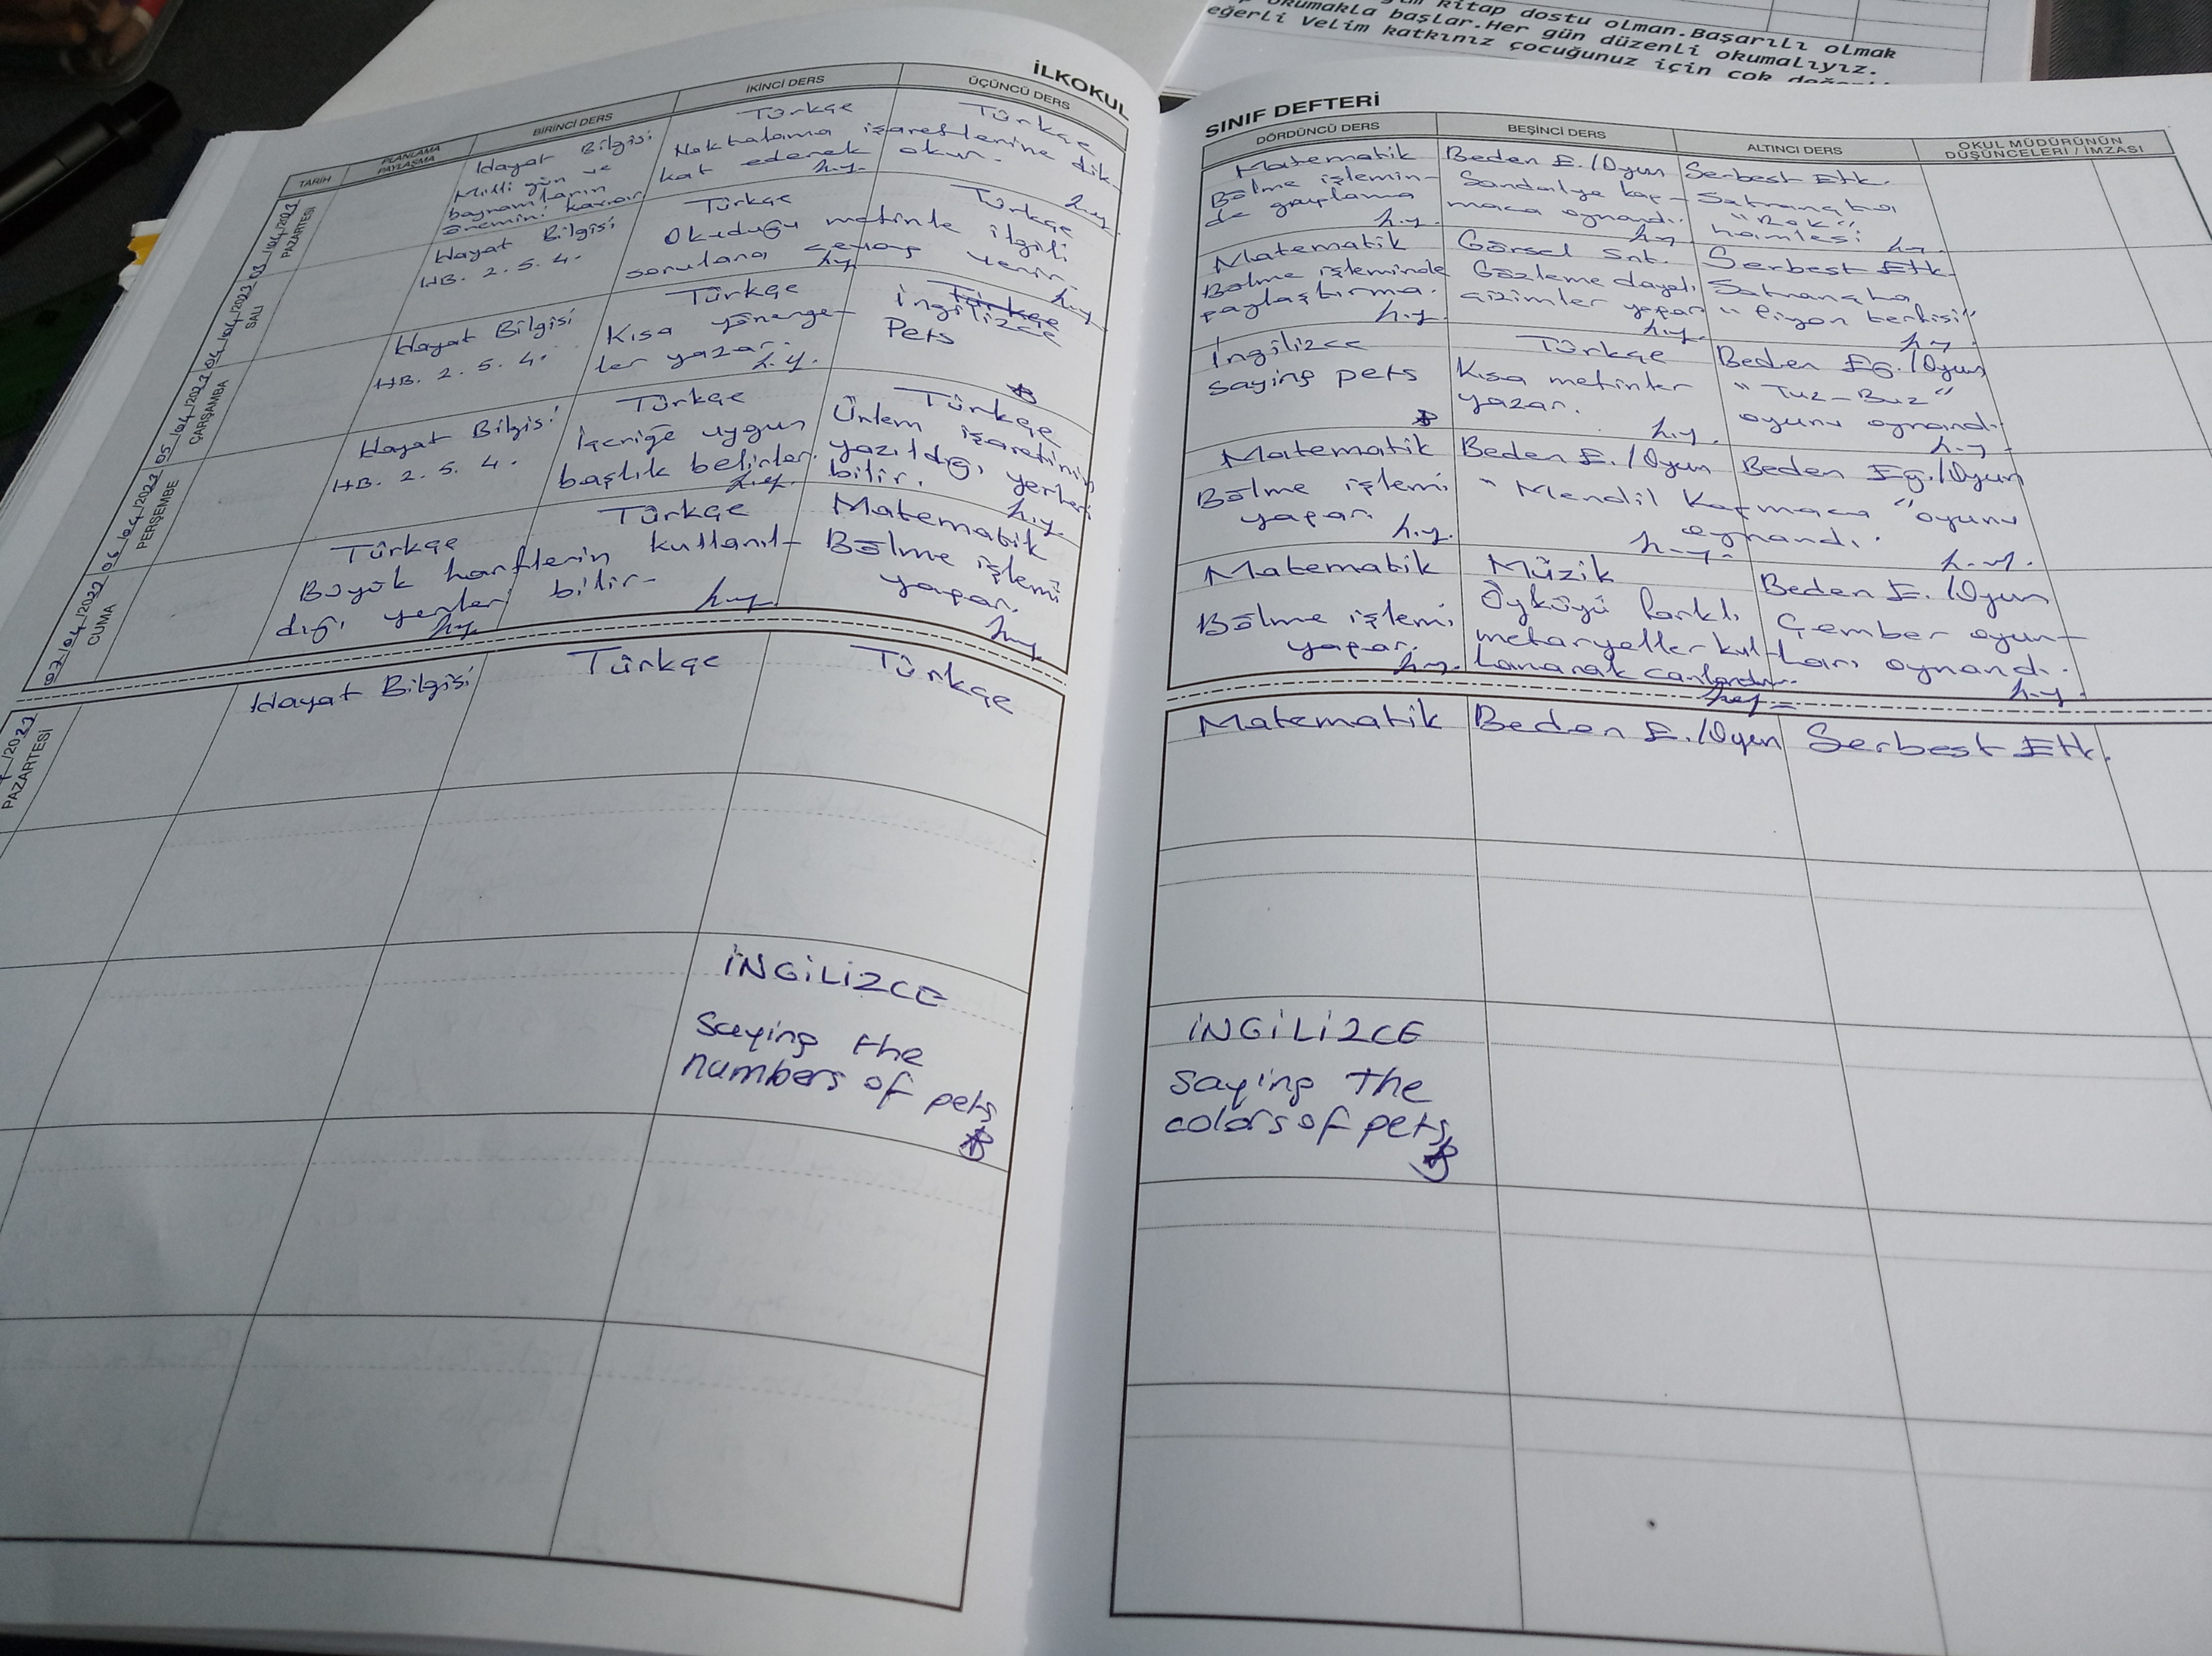 kitap dostu olman.Başarılı olmak
okumakla başlar.Her gün düzenli okumalıyız.
eğerli Velim katkınız çocuğunuz için çok
İLKOKUL
TARİH PLANLAMA PAYLAŞMA BİRİNCİ DERS İKİNCİ DERS ÜÇÜNCÜ DERS
03/04/2023 PAZARTESİ
Hayat Bilgisi
Milli gün ve
bayramların
önemini kavrar
Türkçe Türkçe
Noktalama işaretlerine dik-
kat ederek okur.
h.y. h.y.
04/04/2023 SALI
Hayat Bilgisi
HB. 2. 5. 4.
Türkçe Türkçe
Okuduğu metinle ilgili
sorulara cevap verir.
h.y. h.y.
05/04/2023 ÇARŞAMBA
Hayat Bilgisi
HB. 2. 5. 4.
Türkçe
Kısa yönerge-
ler yazar.
h.y.
Türkçe
İngilizce
Pets
06/04/2023 PERŞEMBE
Hayat Bilgisi
HB. 2. 5. 4.
Türkçe
İçeriğe uygun
başlık belirler.
h.y.
Türkçe
Ünlem işaretinin
yazıldığı yerleri
bilir.
h.y.
07/04/2023 CUMA
Türkçe Türkçe
Büyük harflerin kullanıl-
dığı yerleri bilir.
h.y. h.y.
Matematik
Bölme işlemi
yapar.
h.y.
/2023 PAZARTESİ
Hayat Bilgisi
Türkçe
Türkçe
İNGİLİZCE
Saying the
numbers of pets
SINIF DEFTERİ
DÖRDÜNCÜ DERS BEŞİNCİ DERS ALTINCI DERS OKUL MÜDÜRÜNÜN
DÜŞÜNCELERİ / İMZASI
Matematik
Bölme işlemin-
de gruplama
h.y.
Beden E./Oyun
Sandalye kap-
maca oynandı.
h.y.
Serbest Etk.
Satrançta
"Rok"
hamlesi
h.y.
Matematik
Bölme işleminde
paylaştırma.
h.y.
Görsel Snt.
Gözleme dayalı
çizimler yapar
h.y.
Serbest Etk.
Satrançta
"Piyon terfisi"
h.y.
İngilizce
saying pets
Türkçe
Kısa metinler
yazar.
h.y.
Beden Eğ./Oyun
"Tuz-Buz"
oyunu oynandı.
h.y.
Matematik
Bölme işlemi
yapar.
h.y.
Beden E./Oyun Beden Eğ./Oyun
"Mendil Kapmaca" oyunu
oynandı.
h.y. h.y.
Matematik
Bölme işlemi
yapar.
h.y.
Müzik
Öyküyü farklı
metaryeller kul-
lanarak canlandırır.
Beden E./Oyun
Çember oyun-
ları oynandı.
h.y.
Matematik
Beden E./Oyun
Serbest Etk.
İNGİLİZCE
saying the
colors of pets